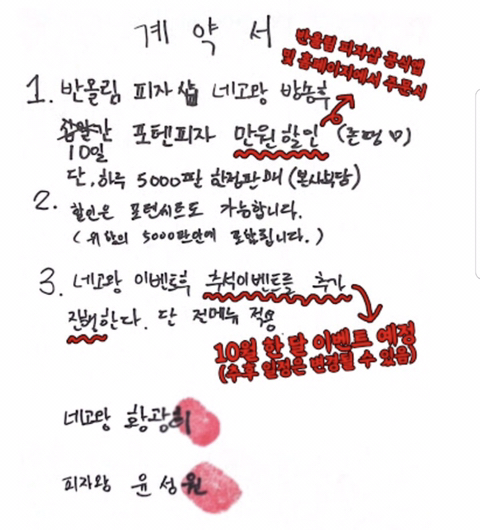 계 약 서
반올림 피자샵 공식앱
및 홈페이지에서 주문시
1. 반올림 피자샵 네고왕 방송후
10일 포텐피자 만원할인 (존명 ♡)
단, 하루 5000판 한정판매 (본사부담)
2. 할인은 포텐시트도 가능합니다.
( 위 할인 5000판안에 포함됩니다. )
3. 네고왕 이벤트후 추석이벤트를 추가
진행한다. 단 전메뉴 적용
10월 한 달 이벤트 예정
(추후 일정은 변경될 수 있음)
네고왕 황광희
피자왕 윤성원